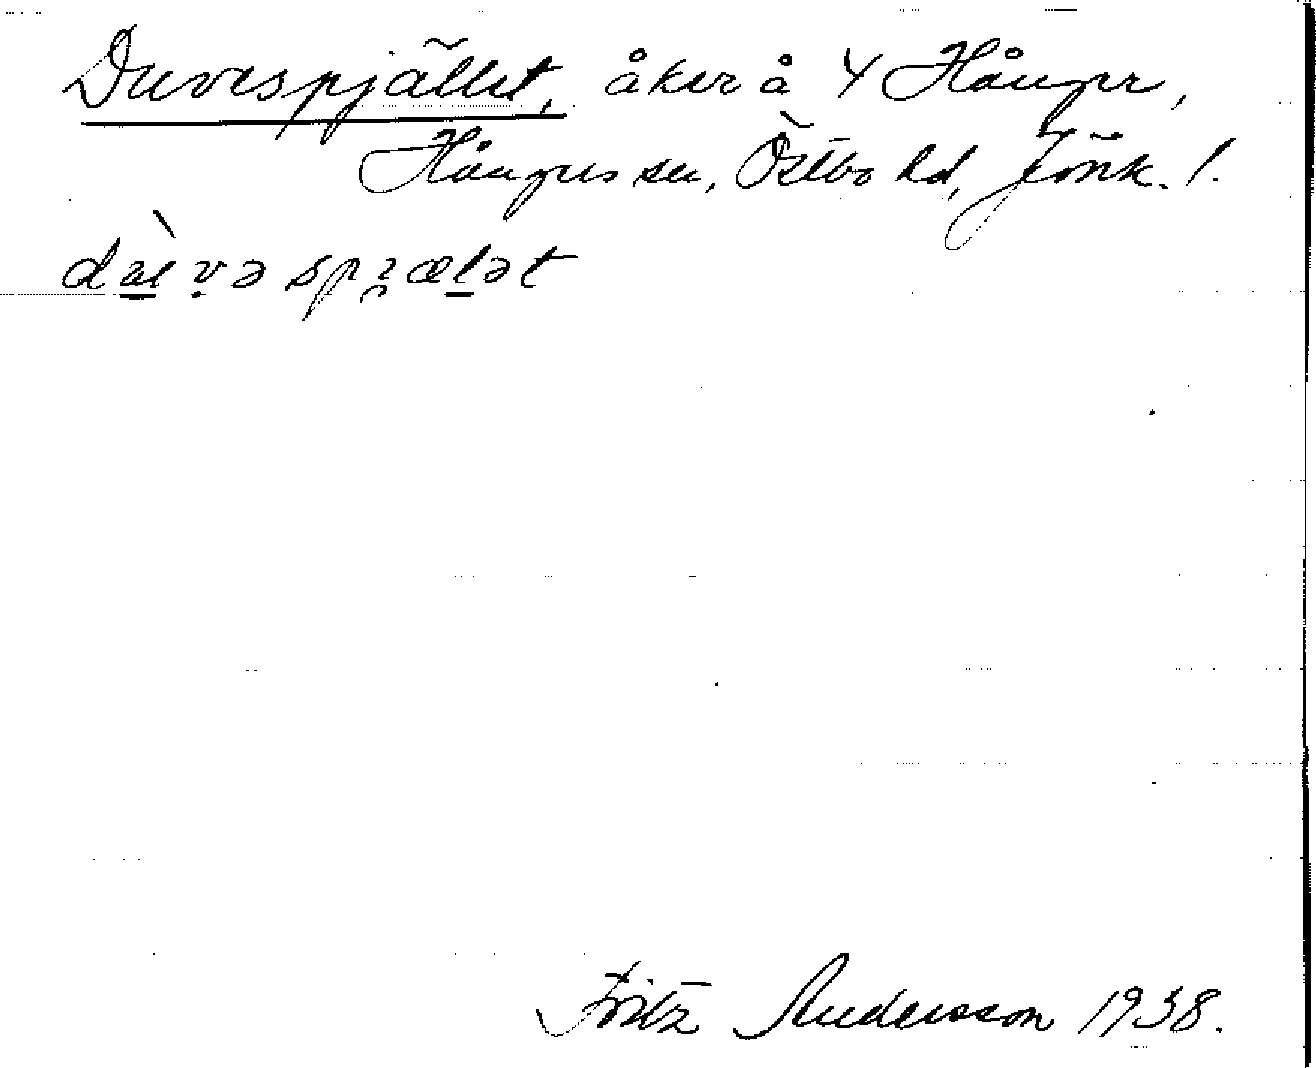 Duvespjället, åker å 4 Hånger,
Hångers sn, Östbo hd, Jönk. l.
Fritz Andersson 1938.